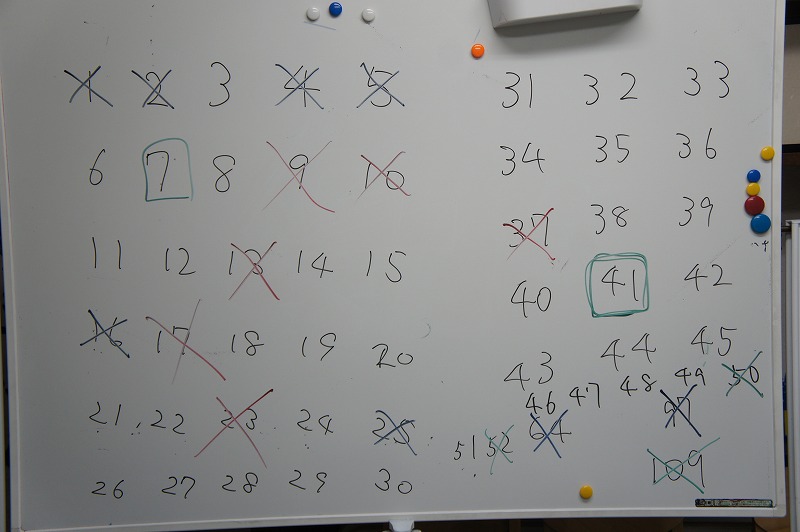 1 2 3 4 5
6 7 8 9 10
11 12 13 14 15
16 17 18 19 20
21 22 23 24 25
26 27 28 29 30
31 32 33
34 35 36
37 38 39
40 41 42
43 44 45
46 47 48 49 50
51 52 64 97
109